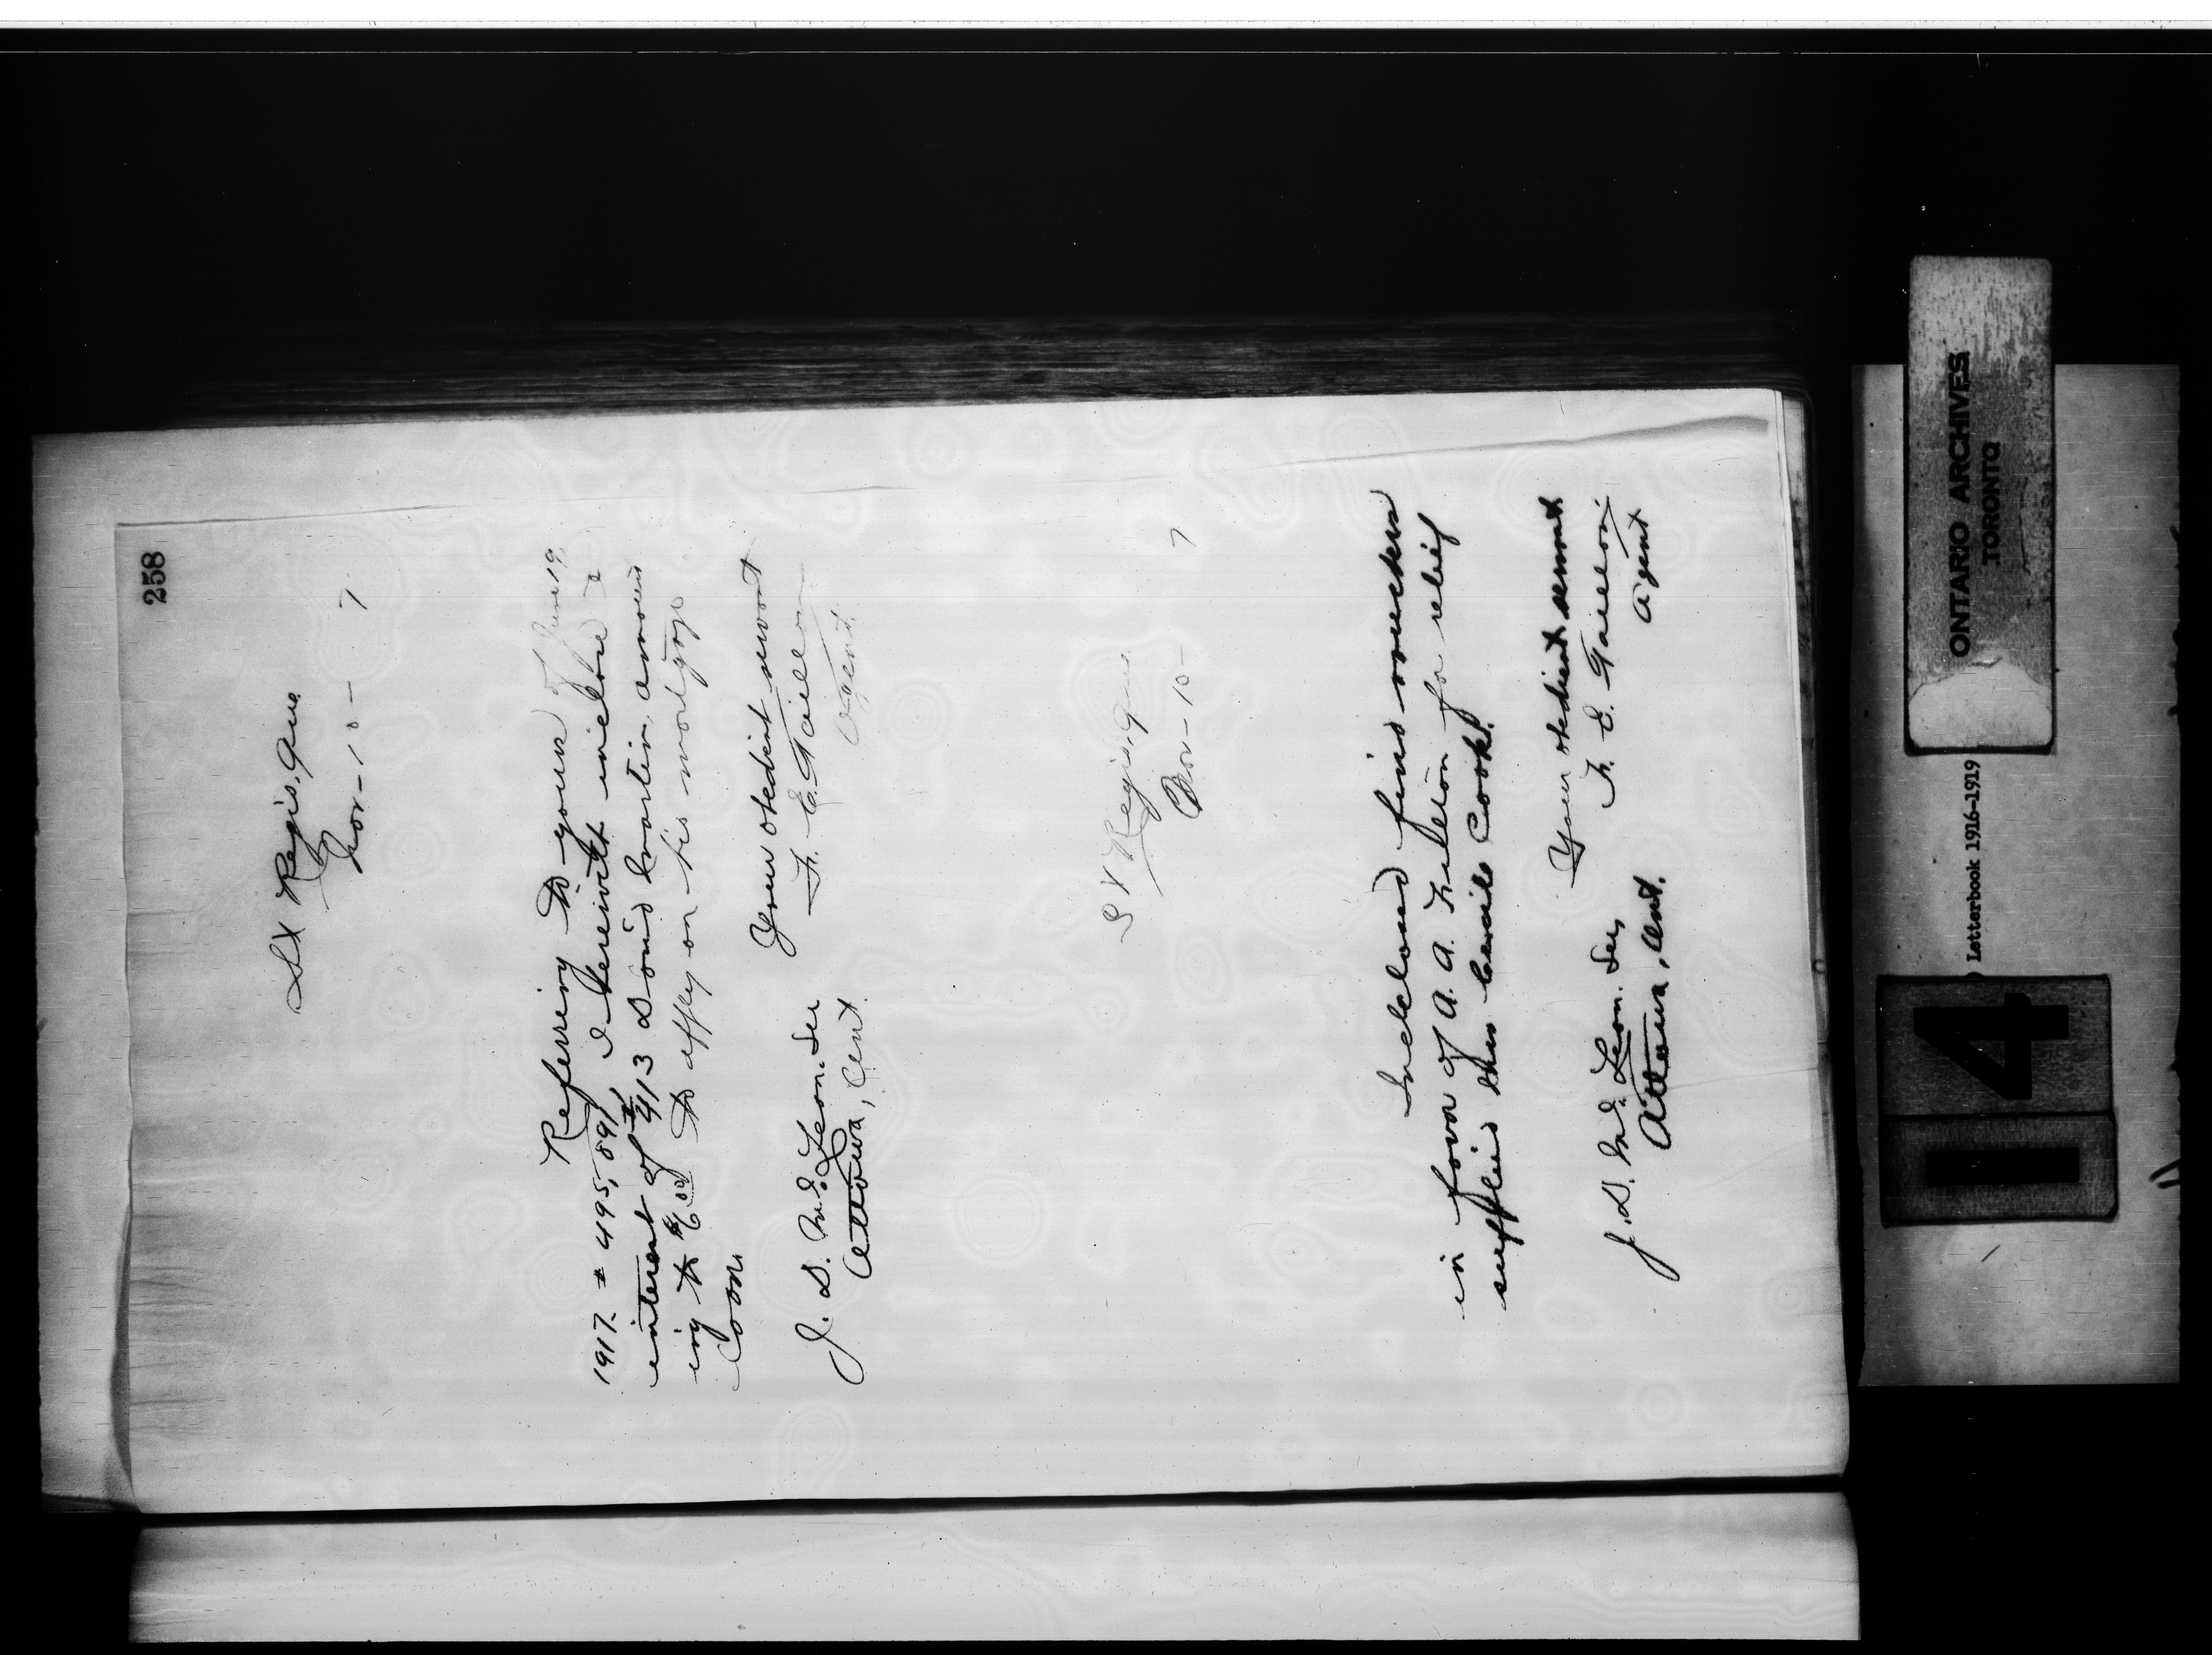 258
St Regis, Que
Nov - 10 - 7
Referring to yours of June 19,
1917. # 495,891, I herewith inclose a
interest of # 413 Louis Martin, amount
ing to $6.00 to apply on his mortgage
Loan
Your obedient servant
F. E. Taillon
Agent.
J. D. McLean. Sec
Ottawa, Ont.
St Regis, Que
Nov - 10 - 7
Inclosed find vouchers
in favor of A. A. Fulton for relief
supplied Mrs Cook.
Your obedient servant
F. E. Taillon
Agent
J. D. McLean. Sec,
Ottawa, Ont.
ONTARIO ARCHIVES
TORONTO
Letterbook 1916-1919
14